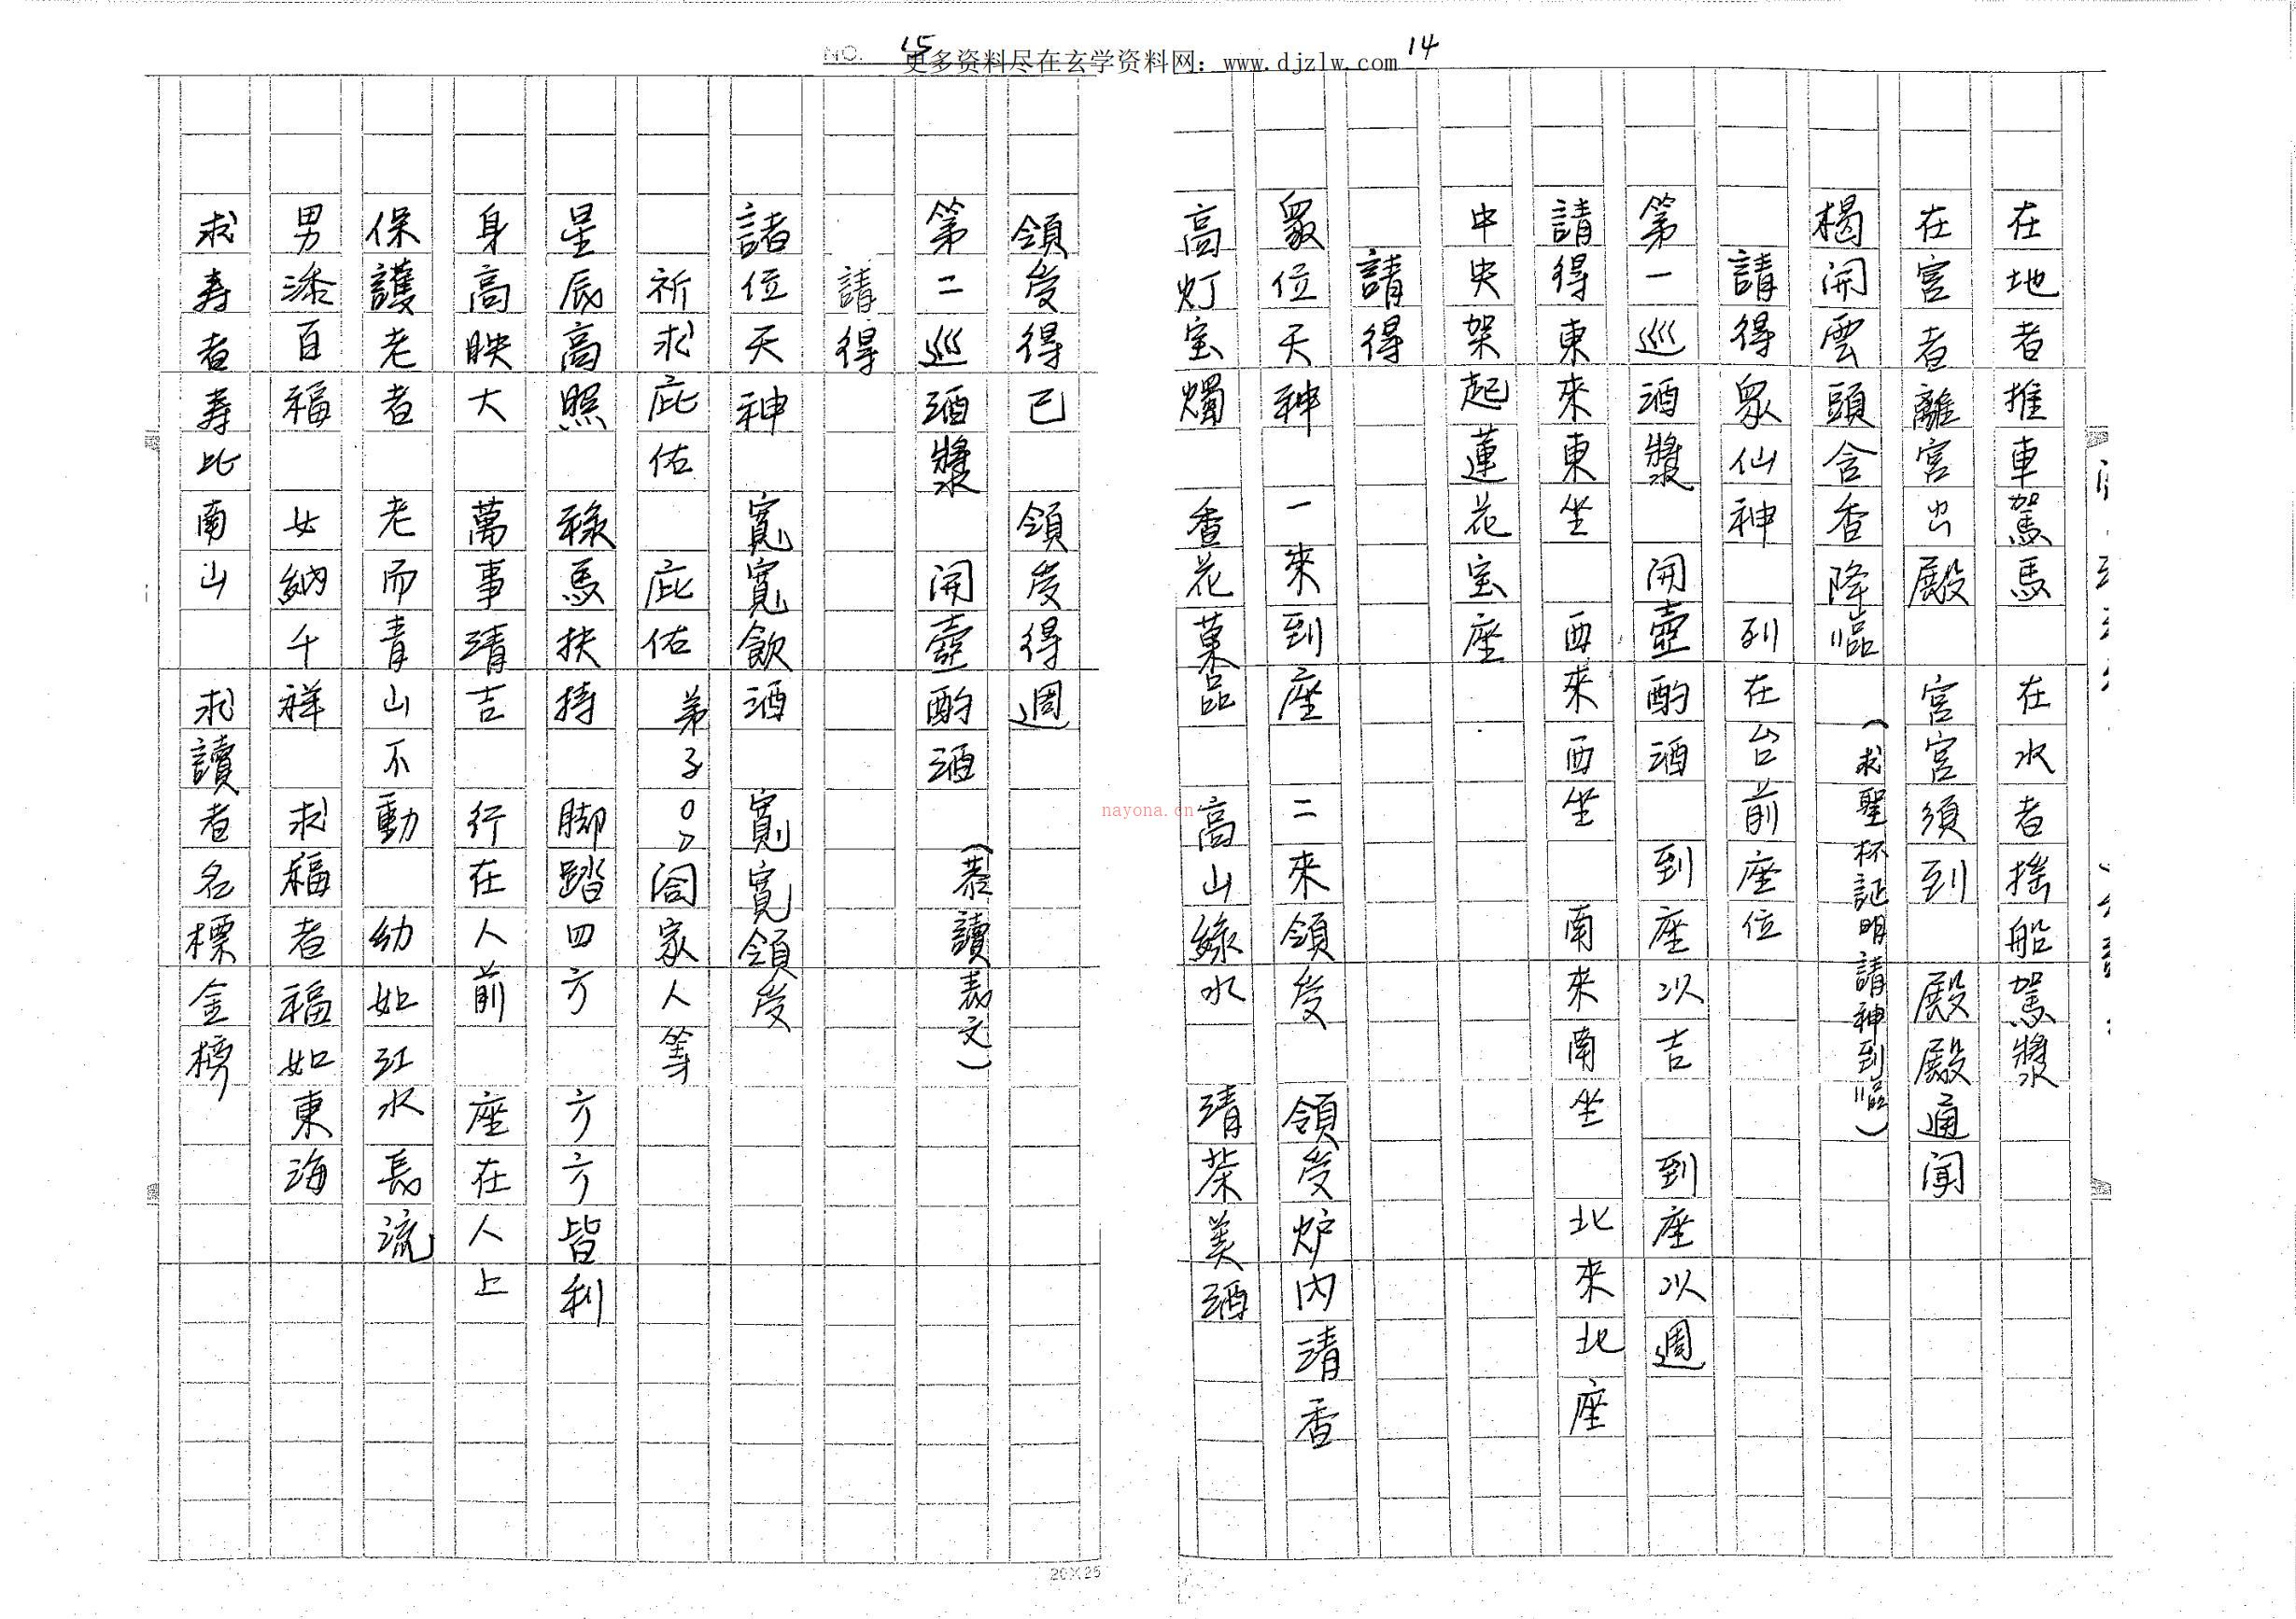 15
14
NO.
更多资料尽在玄学资料网：www.djzlw.com
在地者推車駕馬 在水者搖船駕漿
在宮者離宮出殿 宮宮須到 殿殿通闻
楬開雲頭含香降臨
(求聖杯証明請神到臨)
請得眾仙神 列在台前座位
第一巡酒漿 開壺酌酒 到座以吉 到座以週
請得東來東坐 西來西坐 南來南坐 北來北座
中央架起蓮花宝座
請得
眾位天神 一來到座 二來領受 領受炉内清香
高灯宝燭 香花菓品 高山綠水 清茶美酒
領受得已 領受得週
第二巡酒漿 開壺酌酒
(恭讀表文)
請得
諸位天神 寬寬飲酒 寬寬領受
祈求庇佑 庇佑弟子○○闔家人等
星辰高照 祿馬扶持 脚踏四方 方方皆利
身高映大 萬事清吉 行在人前 座在人上
保護老者 老而青山不動 幼如江水長流
男添百福 女納千祥 求福者福如東海
求寿者寿比南山 求讀者名標金榜
nayona.cn
20×25